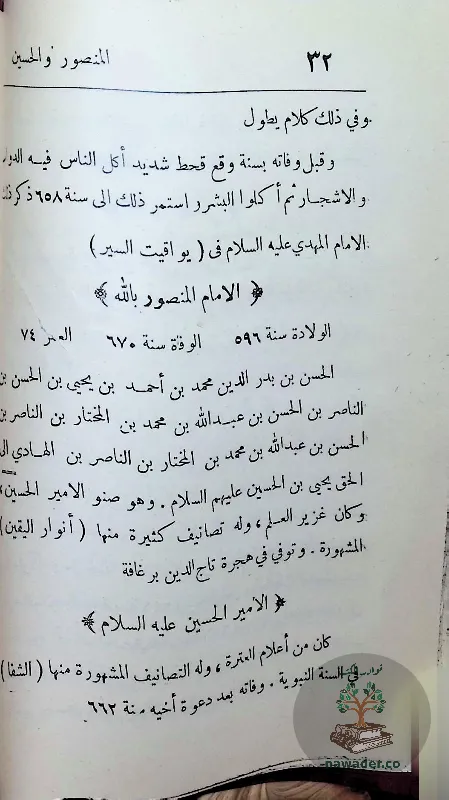 ٣٢ المنصور والحسين
وفي ذلك كلام يطول
وقبل وفاته بسنة وقع قحط شديد أكل الناس فيه
والاشجار ثم أكلوا البشر استمر ذلك الى سنة ٦٥٨ ذكر ذلك
الامام المهدي عليه السلام فى ( يواقيت السير )
﴿ الامام المنصور بالله ﴾
الولادة سنة ٥٩٦ الوفاة سنة ٦٧٠ العمر ٧٤
الحسن بن بدر الدين محمد بن أحمد بن يحيى بن الحسن بن
الناصر بن الحسن بن عبدالله بن محمد بن المختار بن الناصر بن
الحسن بن عبدالله بن محمد بن المختار بن الناصر بن الهادي الى
الحق يحيى بن الحسين عليهم السلام . وهو صنو الامير الحسين ،
وكان غزير العلم ، وله تصانيف كثيرة منها ( أنوار اليقين )
المشهورة . وتوفي في هجرة تاج الدين برغافة
﴿ الأمير الحسين عليه السلام ﴾
كان من أعلام العترة ، وله التصانيف المشهورة منها ( الشفا )
في السنة النبوية . وفاته بعد دعوة أخيه سنة ٦٦٢
nawader.co